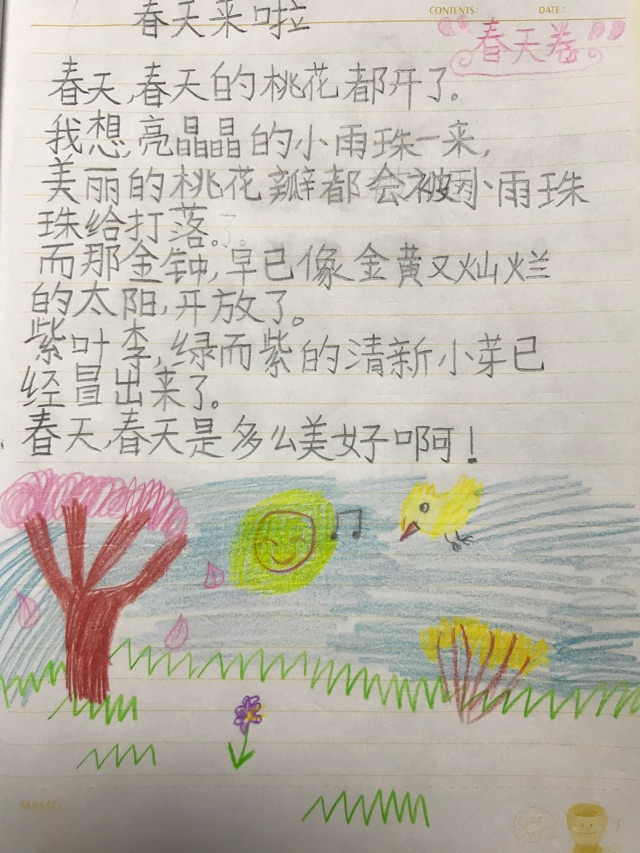 春天来啦
CONTENTS:
DATE:
春天卷
春天,春天的桃花都开了。
我想,亮晶晶的小雨珠一来,
美丽的桃花瓣都会被因小雨珠
珠给打落。
而那金钟,早已像金黄又灿烂
的太阳,开放了。
紫叶李,绿而紫的清新小芽已
经冒出来了。
春天,春天是多么美好啊!
MEMO